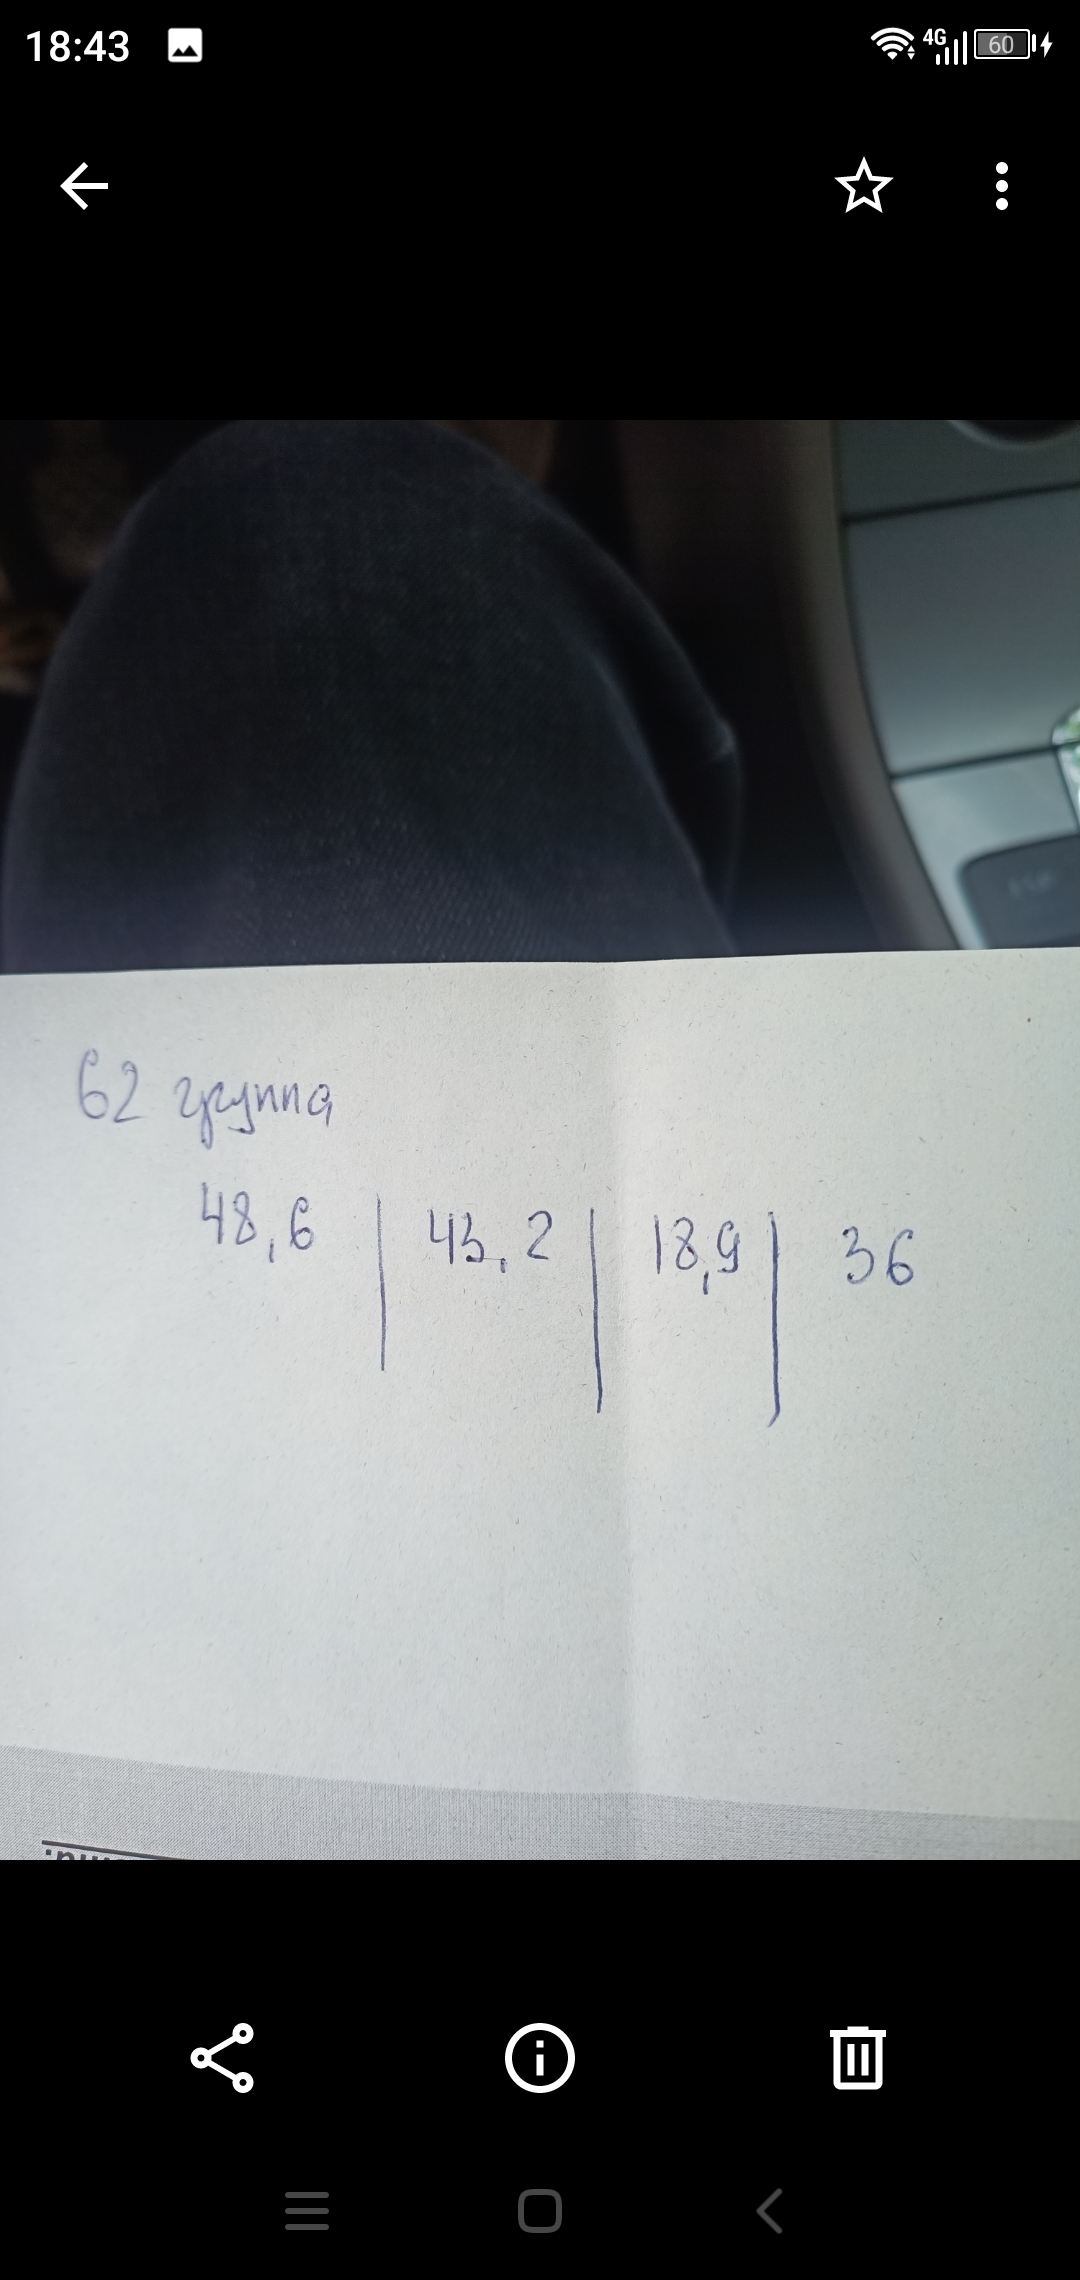 18:43
4G
60
62 группа
48,6 | 43,2 | 18,9 | 36